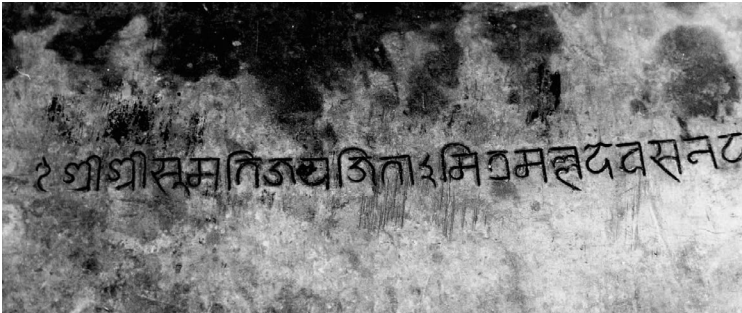 १ श्रीश्रीसुमतिजयजिताऽमित्रमल्लदेवसनद